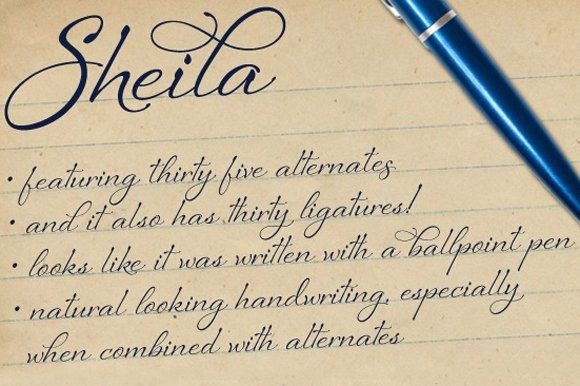 Sheila
• featuring thirty five alternates
• and it also has thirty ligatures!
• looks like it was written with a ballpoint pen
• natural looking handwriting, especially
when combined with alternates